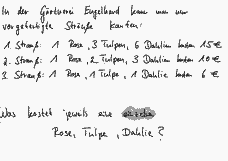 In der Gärtnerei Engelhand kann man
vorgefertigte Sträuße kaufen:
1. Strauß: 1 Rose, 3 Tulpen, 6 Dahlien kosten 15 €
2. Strauß: 1 Rose, 2 Tulpen, 3 Dahlien kosten 10 €
3. Strauß: 1 Rose, 1 Tulpe, 1 Dahlie kosten 6 €
Was kostet jeweils eine
Rose, Tulpe, Dahlie?